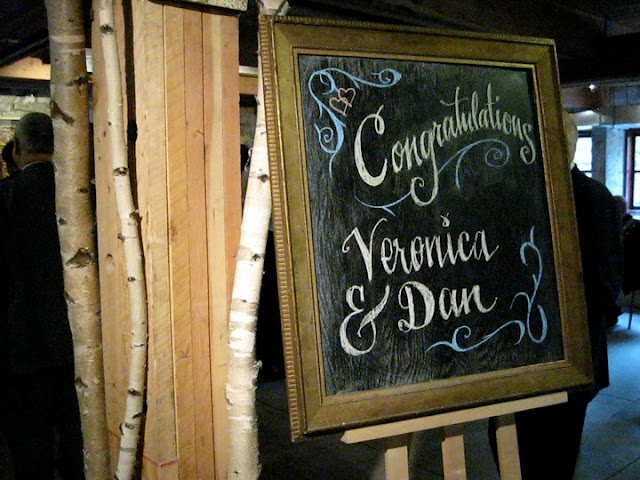 Congratulations
Veronica
& Dan